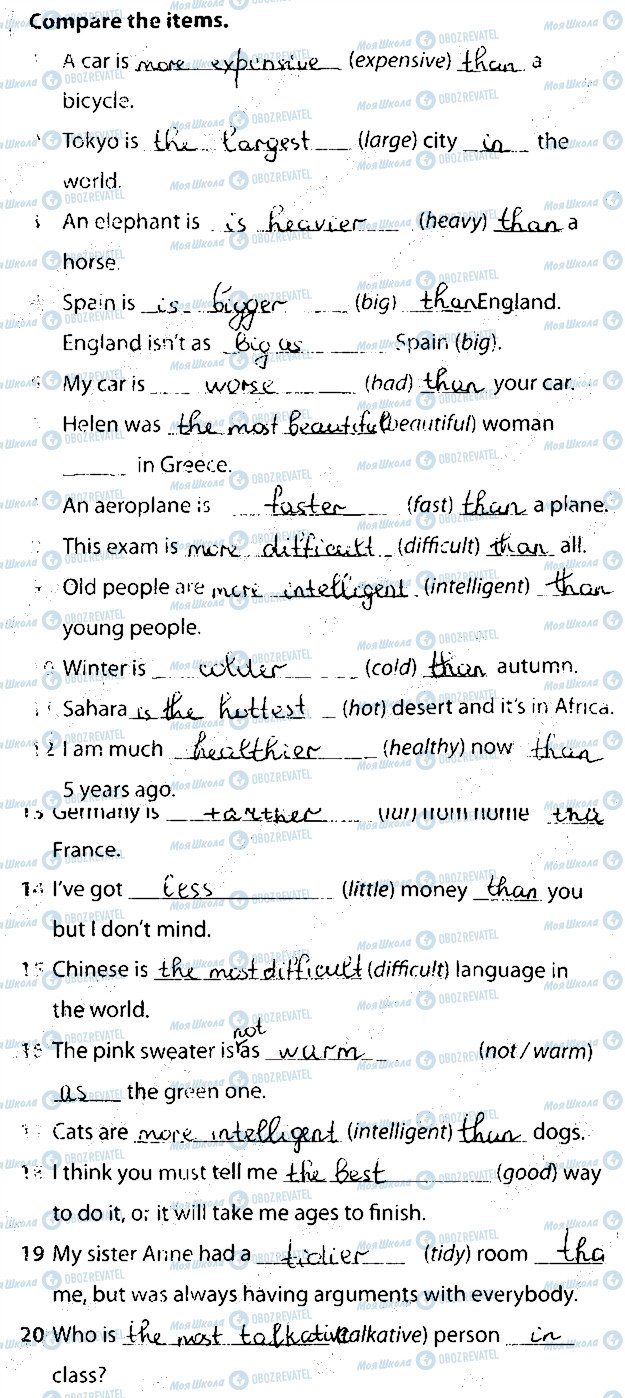 Compare the items.
A car is more expensive (expensive) than a
bicycle.
Tokyo is the largest (large) city in the
world.
An elephant is is heavier (heavy) than a
horse.
Spain is is bigger (big) than England.
England isn't as big as Spain (big).
My car is worse (bad) than your car.
Helen was the most beautiful (beautiful) woman
in Greece.
An aeroplane is faster (fast) than a plane.
This exam is more difficult (difficult) than all.
Old people are more intelligent (intelligent) than
young people.
Winter is colder (cold) than autumn.
11 Sahara is the hottest (hot) desert and it's in Africa.
12 I am much healthier (healthy) now than
5 years ago.
13 Germany is farther (far) from home tha
France.
14 I've got less (little) money than you
but I don't mind.
15 Chinese is the most difficult (difficult) language in
the world.
16 The pink sweater is not as warm (not / warm)
as the green one.
Cats are more intelligent (intelligent) than dogs.
18 I think you must tell me the best (good) way
to do it, or it will take me ages to finish.
19 My sister Anne had a tidier (tidy) room tha
me, but was always having arguments with everybody.
20 Who is the most talkative (talkative) person in
class?
Моя Школа OBOZREVATEL